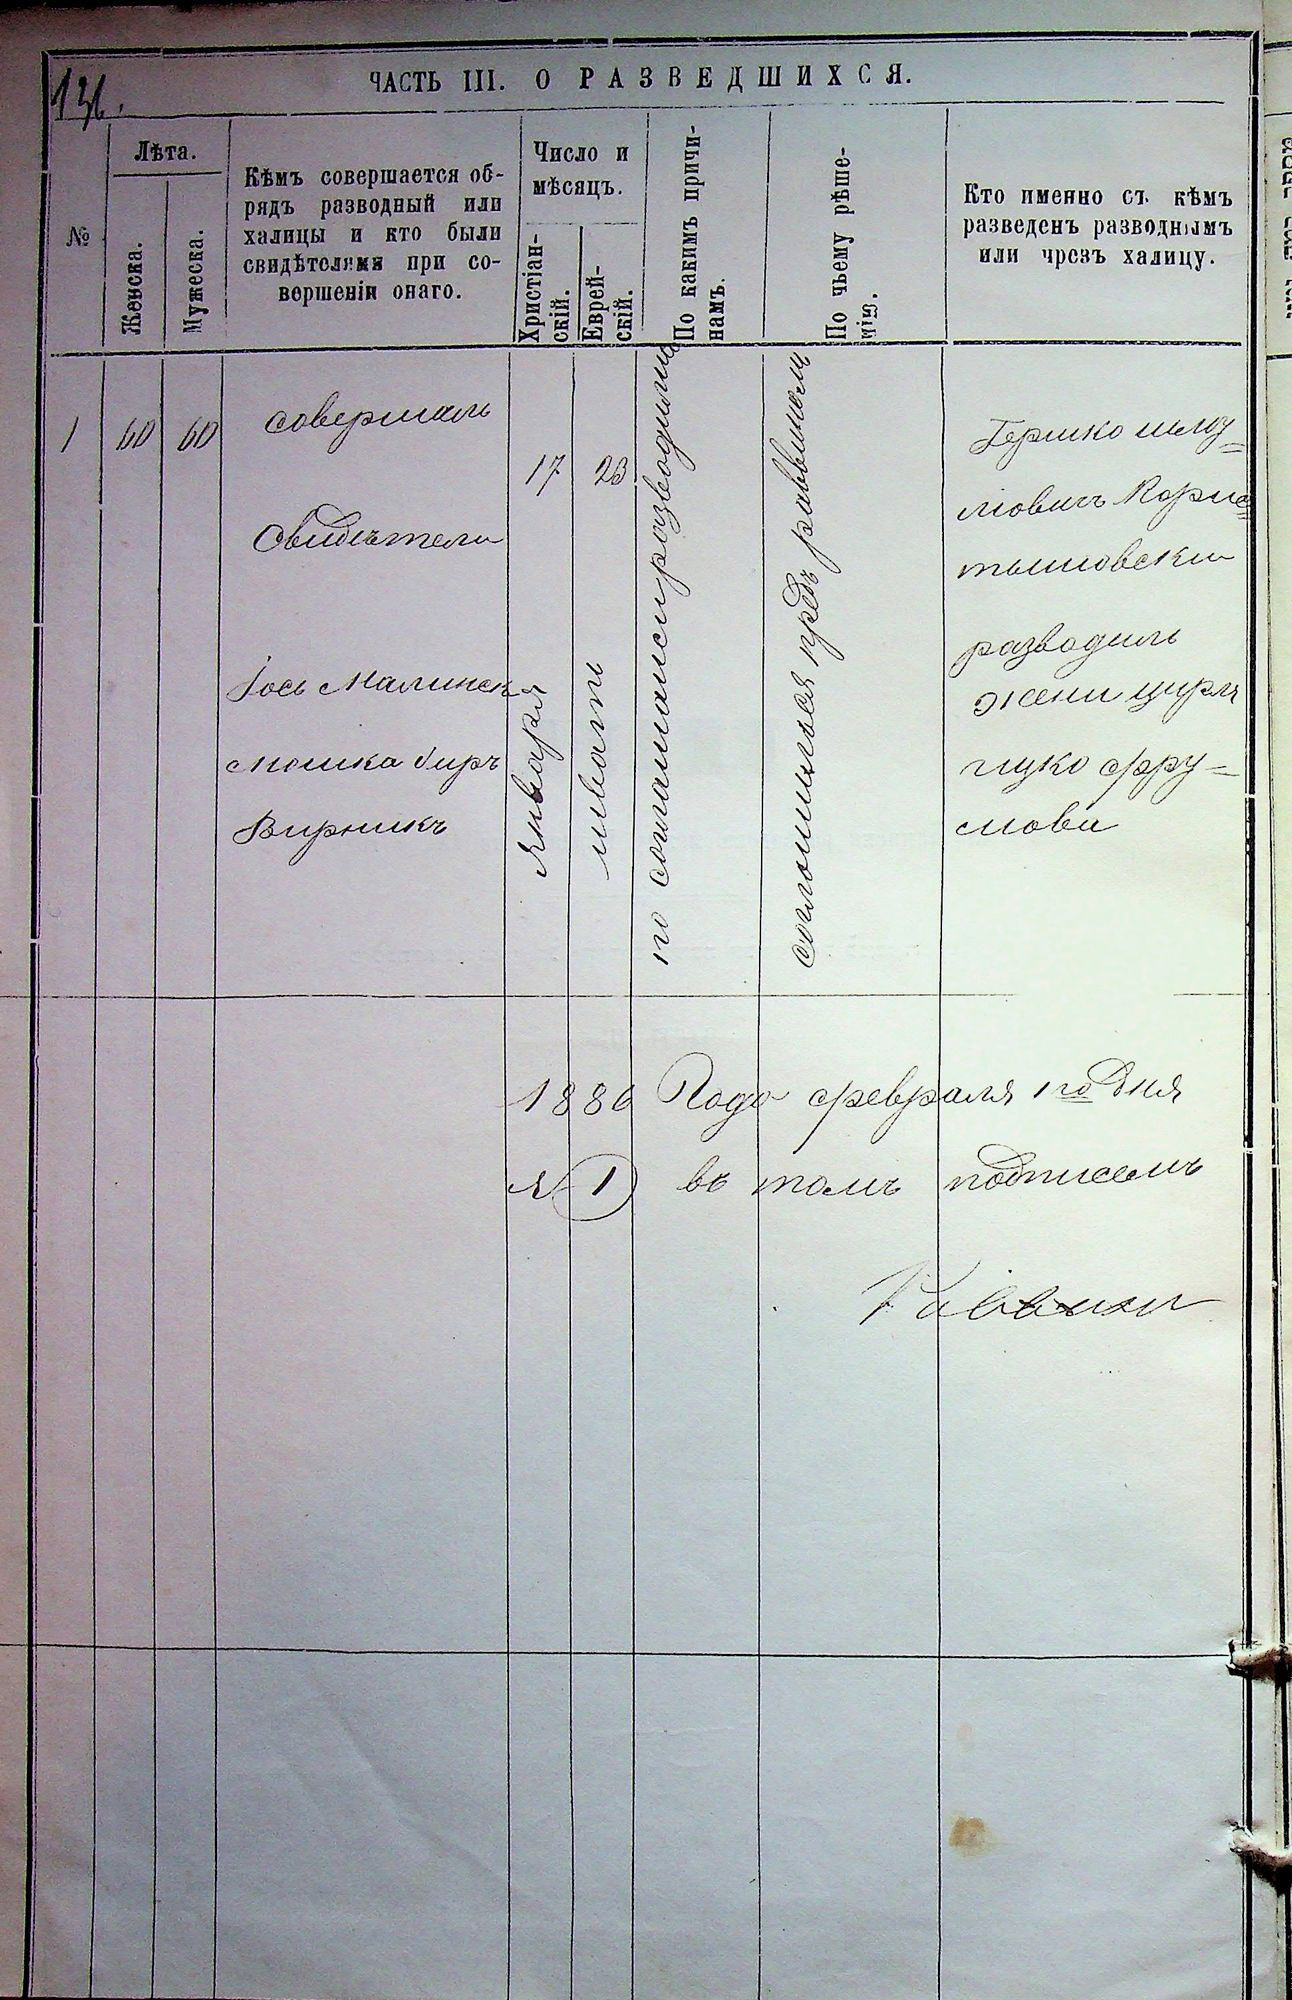 131.
ЧАСТЬ III. О РАЗВЕДШИХСЯ.
№
Лѣта.
Женска.
Мужеска.
Кѣмъ совершается об-
рядъ разводный или
халицы и кто были
свидѣтелями при со-
вершеніи онаго.
Число и
мѣсяцъ.
Христіан-
скій.
Еврей-
скій.
По какимъ причи-
намъ.
По чьему рѣше-
нію.
Кто именно съ кѣмъ
разведенъ разводнымъ
или чрезъ халицу.
1
60
60
совершалъ
Свидѣтели
Іось Малинск
Мошка
Вирникъ
17
Января
23
шватъ
по согламаси розводились
согломился предъ раввиномъ
Гершко шлу=
мовичъ Корне=
тышовскии
розводилъ
жени цирля
ицко фру=
мови
1886 Года февраля 1го дня
№ 1 въ томъ подписемъ
Раввин